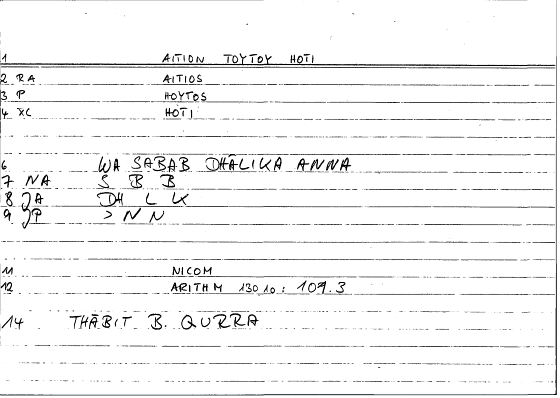 1 AITION TOYTOY HOTI
2 RA AITIOS
3 P HOYTOS
4 XC HOTI
6 WA SABAB DHALIKA ANNA
7 NA S B B
8 JA DH L K
9 JP > N N
11 NICOM
12 ARITHM 130 10 : 109.3
14 THĀBIT B. QURRA